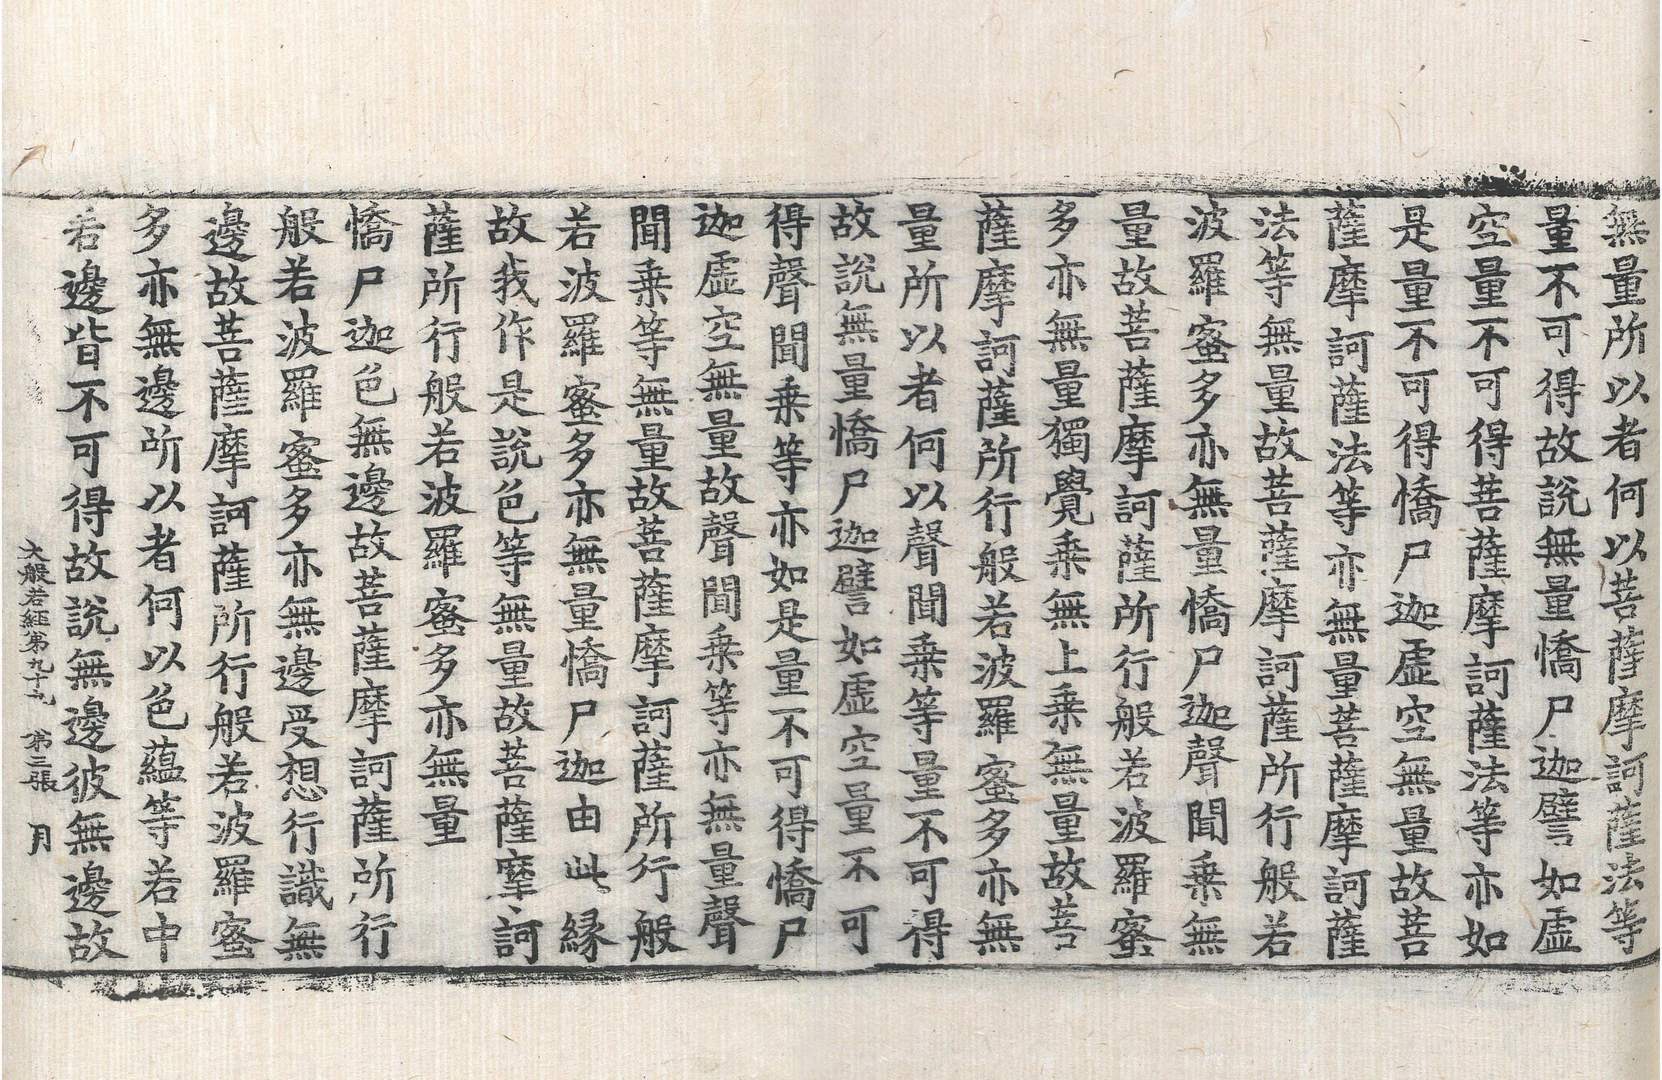 無量所以者何以菩薩摩訶薩法等
量不可得故說無量憍尸迦譬如虛
空量不可得菩薩摩訶薩法等亦如
是量不可得憍尸迦虛空無量故菩
薩摩訶薩法等亦無量菩薩摩訶薩
法等無量故菩薩摩訶薩所行般若
波羅蜜多亦無量憍尸迦聲聞乗無
量故菩薩摩訶薩所行般若波羅蜜
多亦無量獨覺乗無上乗無量故菩
薩摩訶薩所行般若波羅蜜多亦無
量所以者何以聲聞乗等量不可得
故說無量憍尸迦譬如虛空量不可
得聲聞乗等亦如是量不可得憍尸
迦虛空無量故聲聞乗等亦無量聲
聞乗等無量故菩薩摩訶薩所行般
若波羅蜜多亦無量憍尸迦由此緣
故我作是說色等無量故菩薩摩訶
薩所行般若波羅蜜多亦無量
憍尸迦色無邊故菩薩摩訶薩所行
般若波羅蜜多亦無邊受想行識無
邊故菩薩摩訶薩所行般若波羅蜜
多亦無邊所以者何以色蘊等若中
若邊皆不可得故說無邊彼無邊故
大般若經第九十九 第三張 月